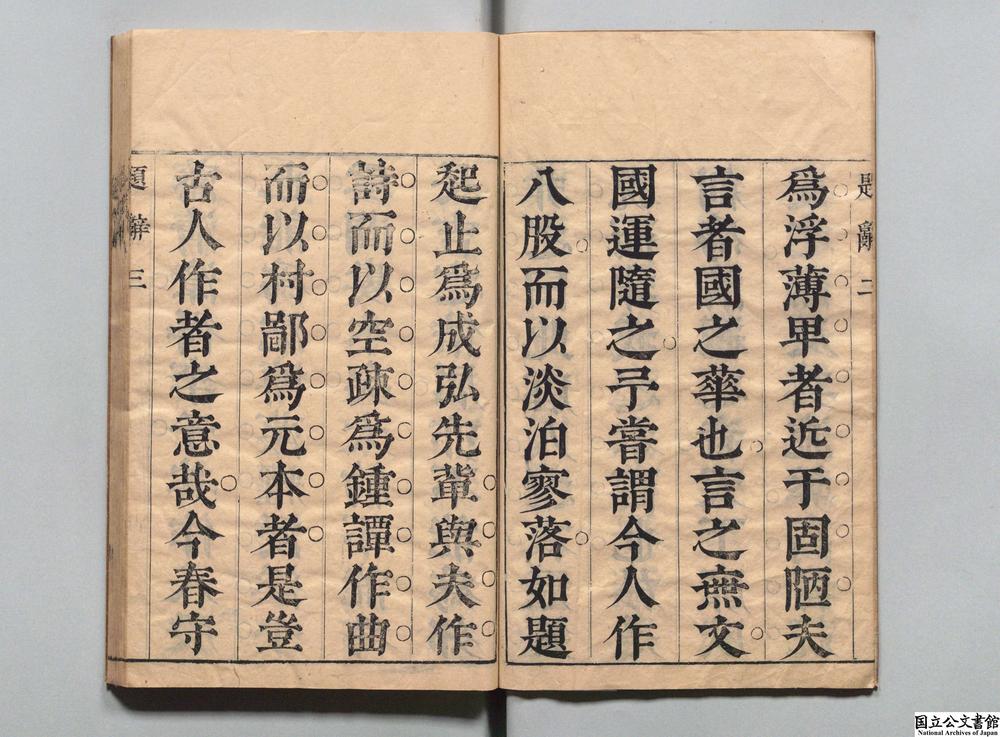 題辭 二
爲浮薄卑者近于固陋夫
言者國之華也言之無文
國運隨之予嘗謂今人作
八股而以淡泊寥落如題
起止爲成弘先軰與夫作
詩而以空疎爲鍾譚作曲
而以村鄙爲元本者是豈
古人作者之意哉今春守
題辭 三
国立公文書館
National Archives of Japan